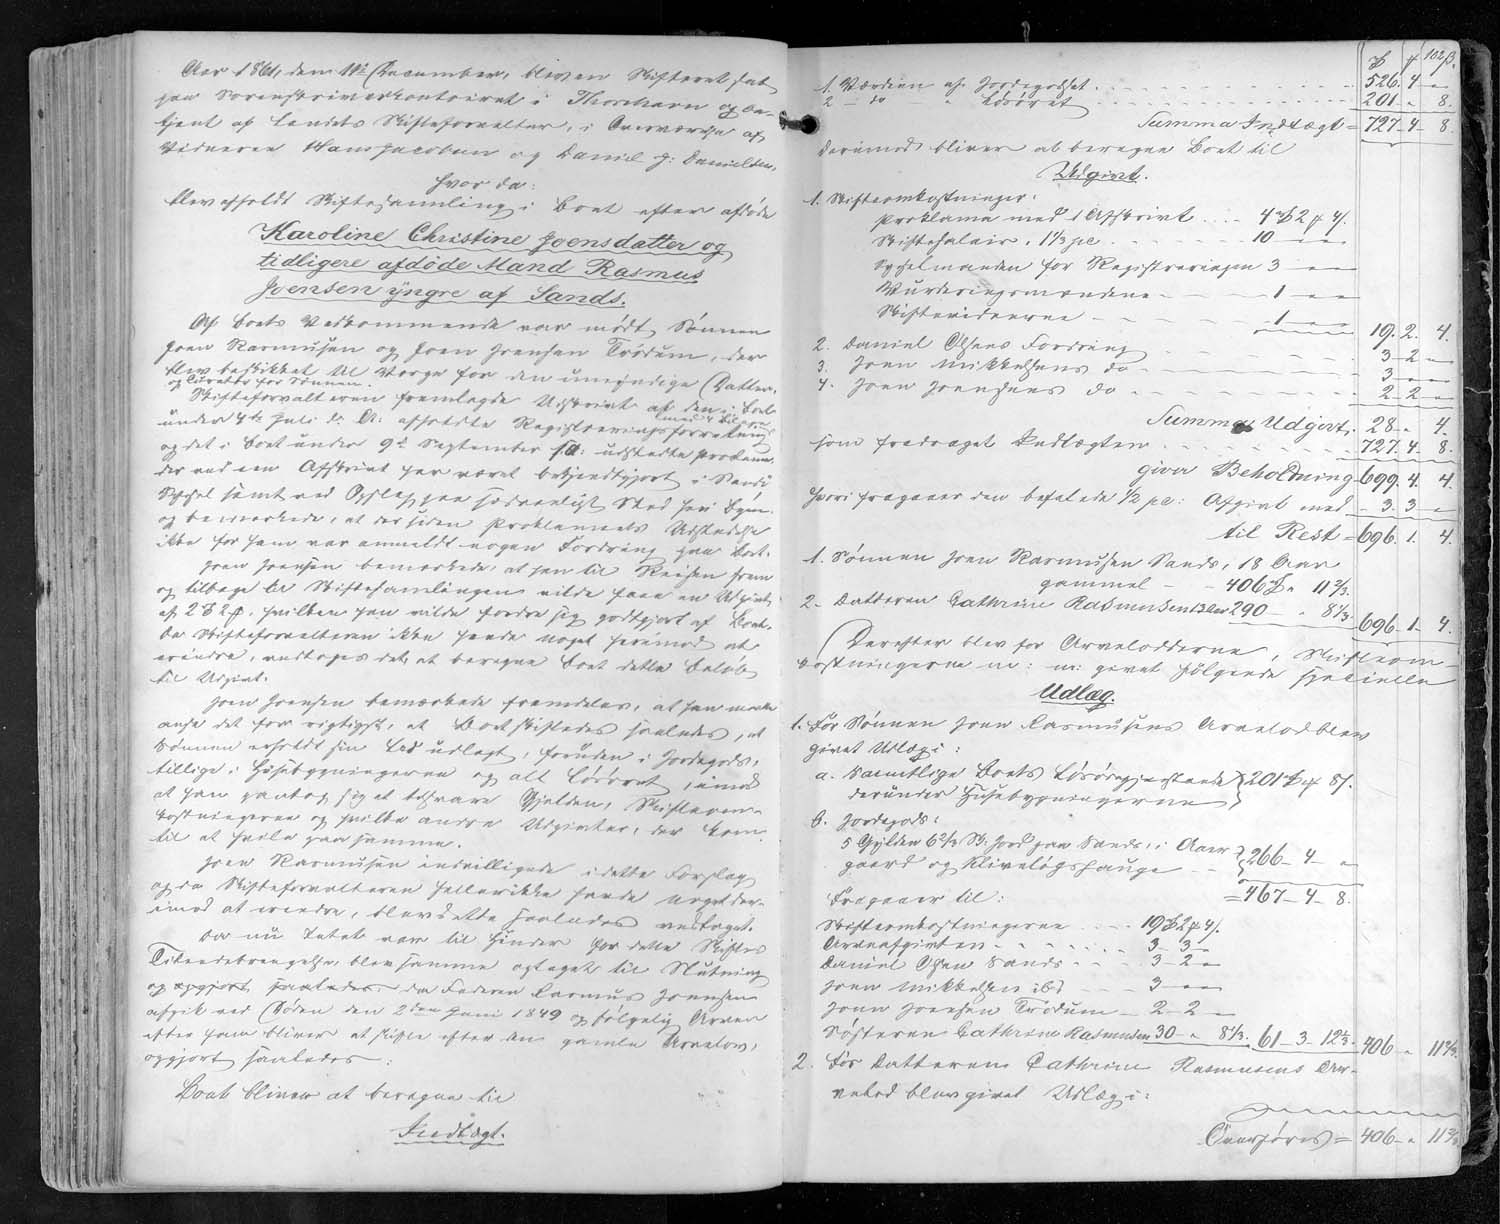 Aar 1861, den 11te December, blev en Skifteret sat
paa Sorenskriverkontoiret i Thorshavn og be-
tjent af Landets Skifteforvalter, i Overværelse af
Vidnerne Hans Jacobsen og Daniel J: Danielsen,
hvor da:
blev afholdt Skiftesamling i Boet efter afdøde
Karoline Christine Joensdatter og
tidligere afdøde Mand Rasmus
Joensen yngre af Sands.
Af Boets Vedkommende var mødt Sønnen
Joen Rasmussen og Joen Joensen Trødum, der
blev beskikket til Værge for den umyndige Datter,
og Curator for Sønnen.
Skifteforvalteren fremlagde Udskrivt af den i Boet
under 4de Juli d: A: afholdte Registreringsforretning
med 4 Bilag
og det i Boet under 9de September s: A: udstedte Proclama
der ved een Afskrivt har været bekjendtgjort i Sandø
Syssel samt ved Opslag paa sædvanligt Sted her i Byen,
og bemærkede, at der siden Proklamets Udstædelse
ikke for ham var anmeldt nogen Fordring paa Boet.
Joen Joensen bemærkede, at han til Reisen frem
og tilbage til Skiftesamlingen vilde faae en Udgivt
af 2 Rd 2 Mk, hvilken han vilde fordre sig godtgjort af Boet.
Da Skifteforvalteren ikke havde noget herimod at
erindre, vedtoges det, at beregne Boet dette Beløb
til Udgivt.
Joen Joensen bemærkede fremdeles, at han maatte
ansee det for rigtigst, at Boet skiftedes saaledes, at
Sønnen erholdt sin Lod udlagt, foruden i Jordegods,
tillige i Husebygningerne og alt Løsøret, imod
at han paatog sig at tilsvare Gjælden, Skifteom-
kostningerne og hvilke andre Udgivter, der kom
til at hvile paa samme.
Joen Rasmussen indvilligede i dette Forslag
og da Skifteforvalteren hellerikke havde noget der-
imod at erindre, blev dette saaledes vedtaget.
Da nu Intet var til Hinder for dette Skiftes
Tilendebringelse, blev samme optaget til Slutning
og opgjort saaledes da Faderen Rasmus Joensen
afgik ved Døden den 2den Juni 1849 og følgelig Arven
efter ham bliver at skifte efter den gamle Arvelov,
opgjort saaledes:
Boet bliver at beregne til
Indtægt.
102
1. Værdien af Jordegodset 526. 4 -
2 - do - Løsøret 201 - 8.
Summa Indtægt = 727 - 4 - 8.
Derimod bliver at beregne Boet til
Udgivt.
1. Skifteomkostninger:
Proklama med 1 Afskrivt 4 Rd 2 Mk 4 s.
Skiftesalair, 1 1/3 pc 10 - -
Sysselmanden for Registreringen 3 - -
Vurderingsmændene 1 - -
Skiftevidnerne 1 - - 19. 2. 4.
2. Daniel Olsens Fordring 3 - 2 -
3. Joen Mikkelsens do 3 - -
4. Joen Joensens do 2 - 2 -
Summa Udgivt. 28 - 4.
som fradraget Indtægten 727. 4 - 8.
giver Beholdning 699. 4. 4.
hvori fragaaer den befalede 1/2 pc: Afgivt med 3. 3 -
til Rest = 696. 1. 4.
1. Sønnen Joen Rasmussen Sands, 18 Aar
gammel 406 Rd " 11 2/3.
2. Datteren Cathrine Rasmussen 290 - " 8 1/3. 696 - 1 - 4.
Derefter blev for Arvelodderne, Skifteom-
kostningerne m: m: givet følgende specielle
Udlæg.
1. For Sønnen Joen Rasmussens Arvelod blev
givet Udlæg i:
a. Samtlige Boets Løsøregjenstande
derunder Husebygningerne } 201 Rd " 8 s.
b. Jordegods:
5 Gylden 6 2/3 Sk. Jord paa Sands, i Aaer
gaard og Kliveløgshauge } 266 - 4 - "
= 467 - 4 - 8.
Fragaaer til:
Skifteomkostningerne 19 Rd 2 Mk 4 s.
Arveafgivten 3 - 3 -
Daniel Olsen Sands 3 - 2 -
Joen Mikkelsen ibd 3 - -
Joen Joensen Trødum 2 - 2 -
Søsteren Cathrine Rasmussen 30 - " 8 1/3. 61 - 3 - 12 1/3. 406 - " 11 2/3.
2. For Datteren Cathrine Rasmussens Ar-
velod blev givet Udlæg i:
Overføres = 406 - " 11 2/3